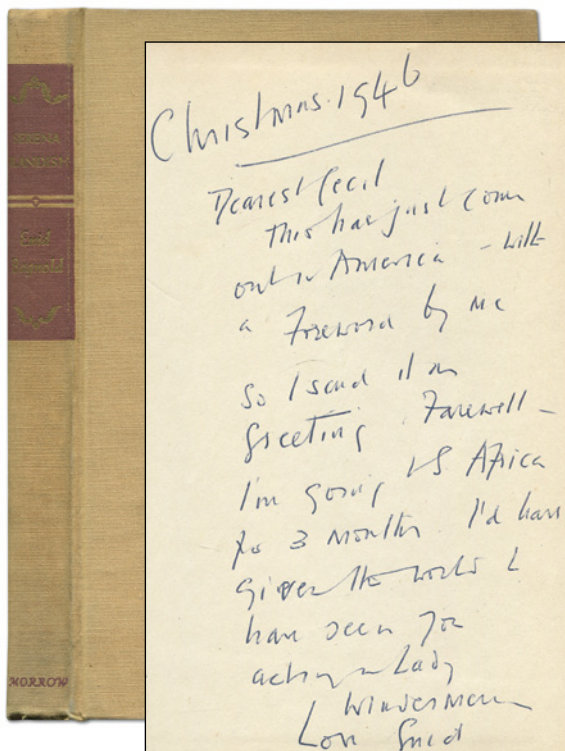 SERENA
BLANDISH
Enid
Bagnold
MORROW
Christmas. 1946
Dearest Cecil
This has just come
out in America – with
a Foreword by me
So I send it in
greeting. Farewell –
I'm going to S Africa
for 3 months. I'd have
given the world to
have seen you
acting in Lady
Windermere
Love Enid